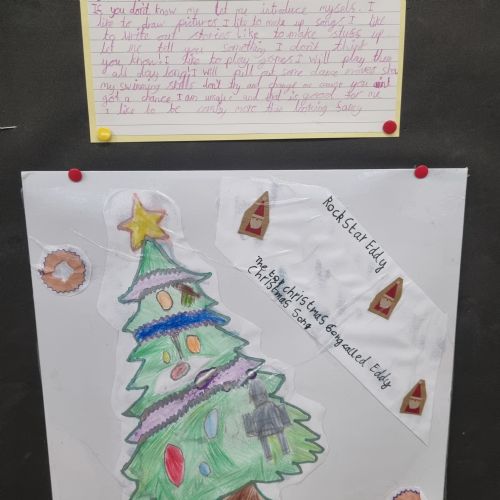 If you don't know me let me introduce myself. I
like to draw pictures I like to make up songs I like
to write out stories I like to make stuff up
let me tell you something I don't think
you know I like to play games I will play them
all day long I will pull out some dance moves show
my swimming skills don't try and change me cause you aint
got a chance I am unique and that is good for me
i like to be candy more than
Rockstar Eddy
The top christmas Song called Eddy
Christmas Song